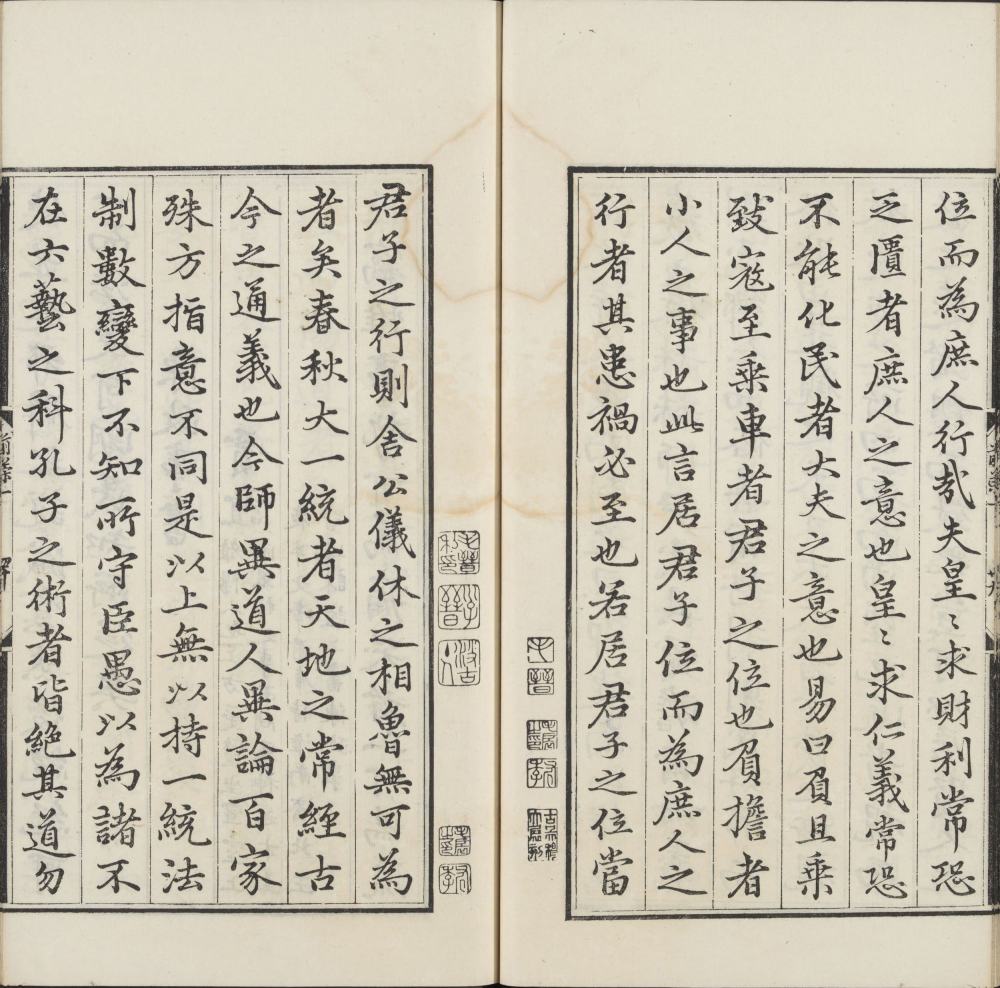 位而為庶人行哉夫皇〻求財利常恐
乏匱者庶人之意也皇〻求仁義常恐
不能化民者大夫之意也易曰負且乗
致寇至乗車者君子之位也負擔者
小人之事也此言居君子位而為庶人之
行者其患禍必至也若居君子之位當
君子之行則舍公儀休之相魯無可為
者矣春秋大一統者天地之常經古
今之通義也今師異道人異論百家
殊方指意不同是以上無以持一統法
制數變下不知所守臣愚以為諸不
在六藝之科孔子之術者皆絶其道勿
毛晉